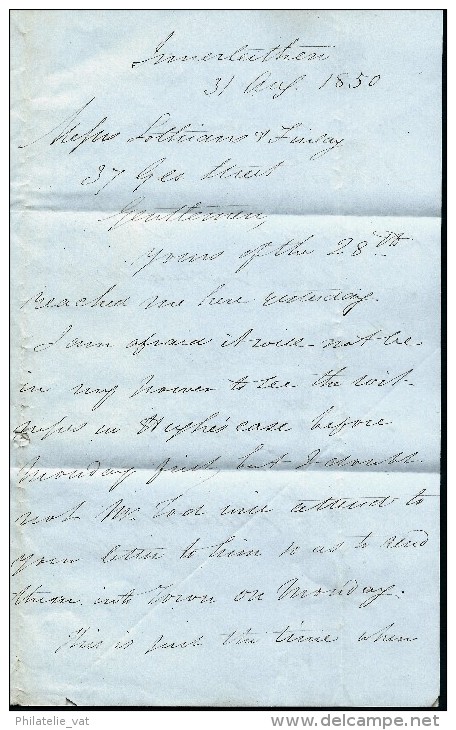 Innerleithen
31 Aug. 1850
Messrs Lothians & Finlay
37 Geo Street
Gentlemen,
Yours of the 28th
reached me here yesterday.
I am afraid it will not be
in my power to see the wit-
nesses in Hughes case before
Monday first, but I doubt
not Mr. Tod will attend to
your letter to him so as to send
them into Town on Monday.
This is just the time when
Philatelie_vat
www.delcampe.net